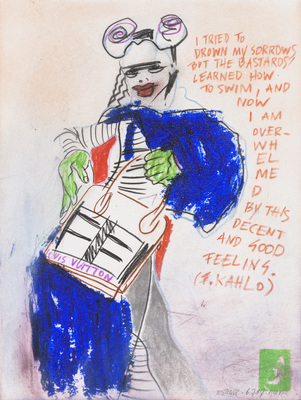 I TRIED TO
DROWN MY SORROWS
BUT THE BASTARDS
LEARNED HOW
TO SWIM, AND
NOW
I AM
OVER-
WH
EL
ME
D
BY THIS
DECENT
AND GOOD
FEELING.
(F. KAHLO)
LOUIS VUITTON